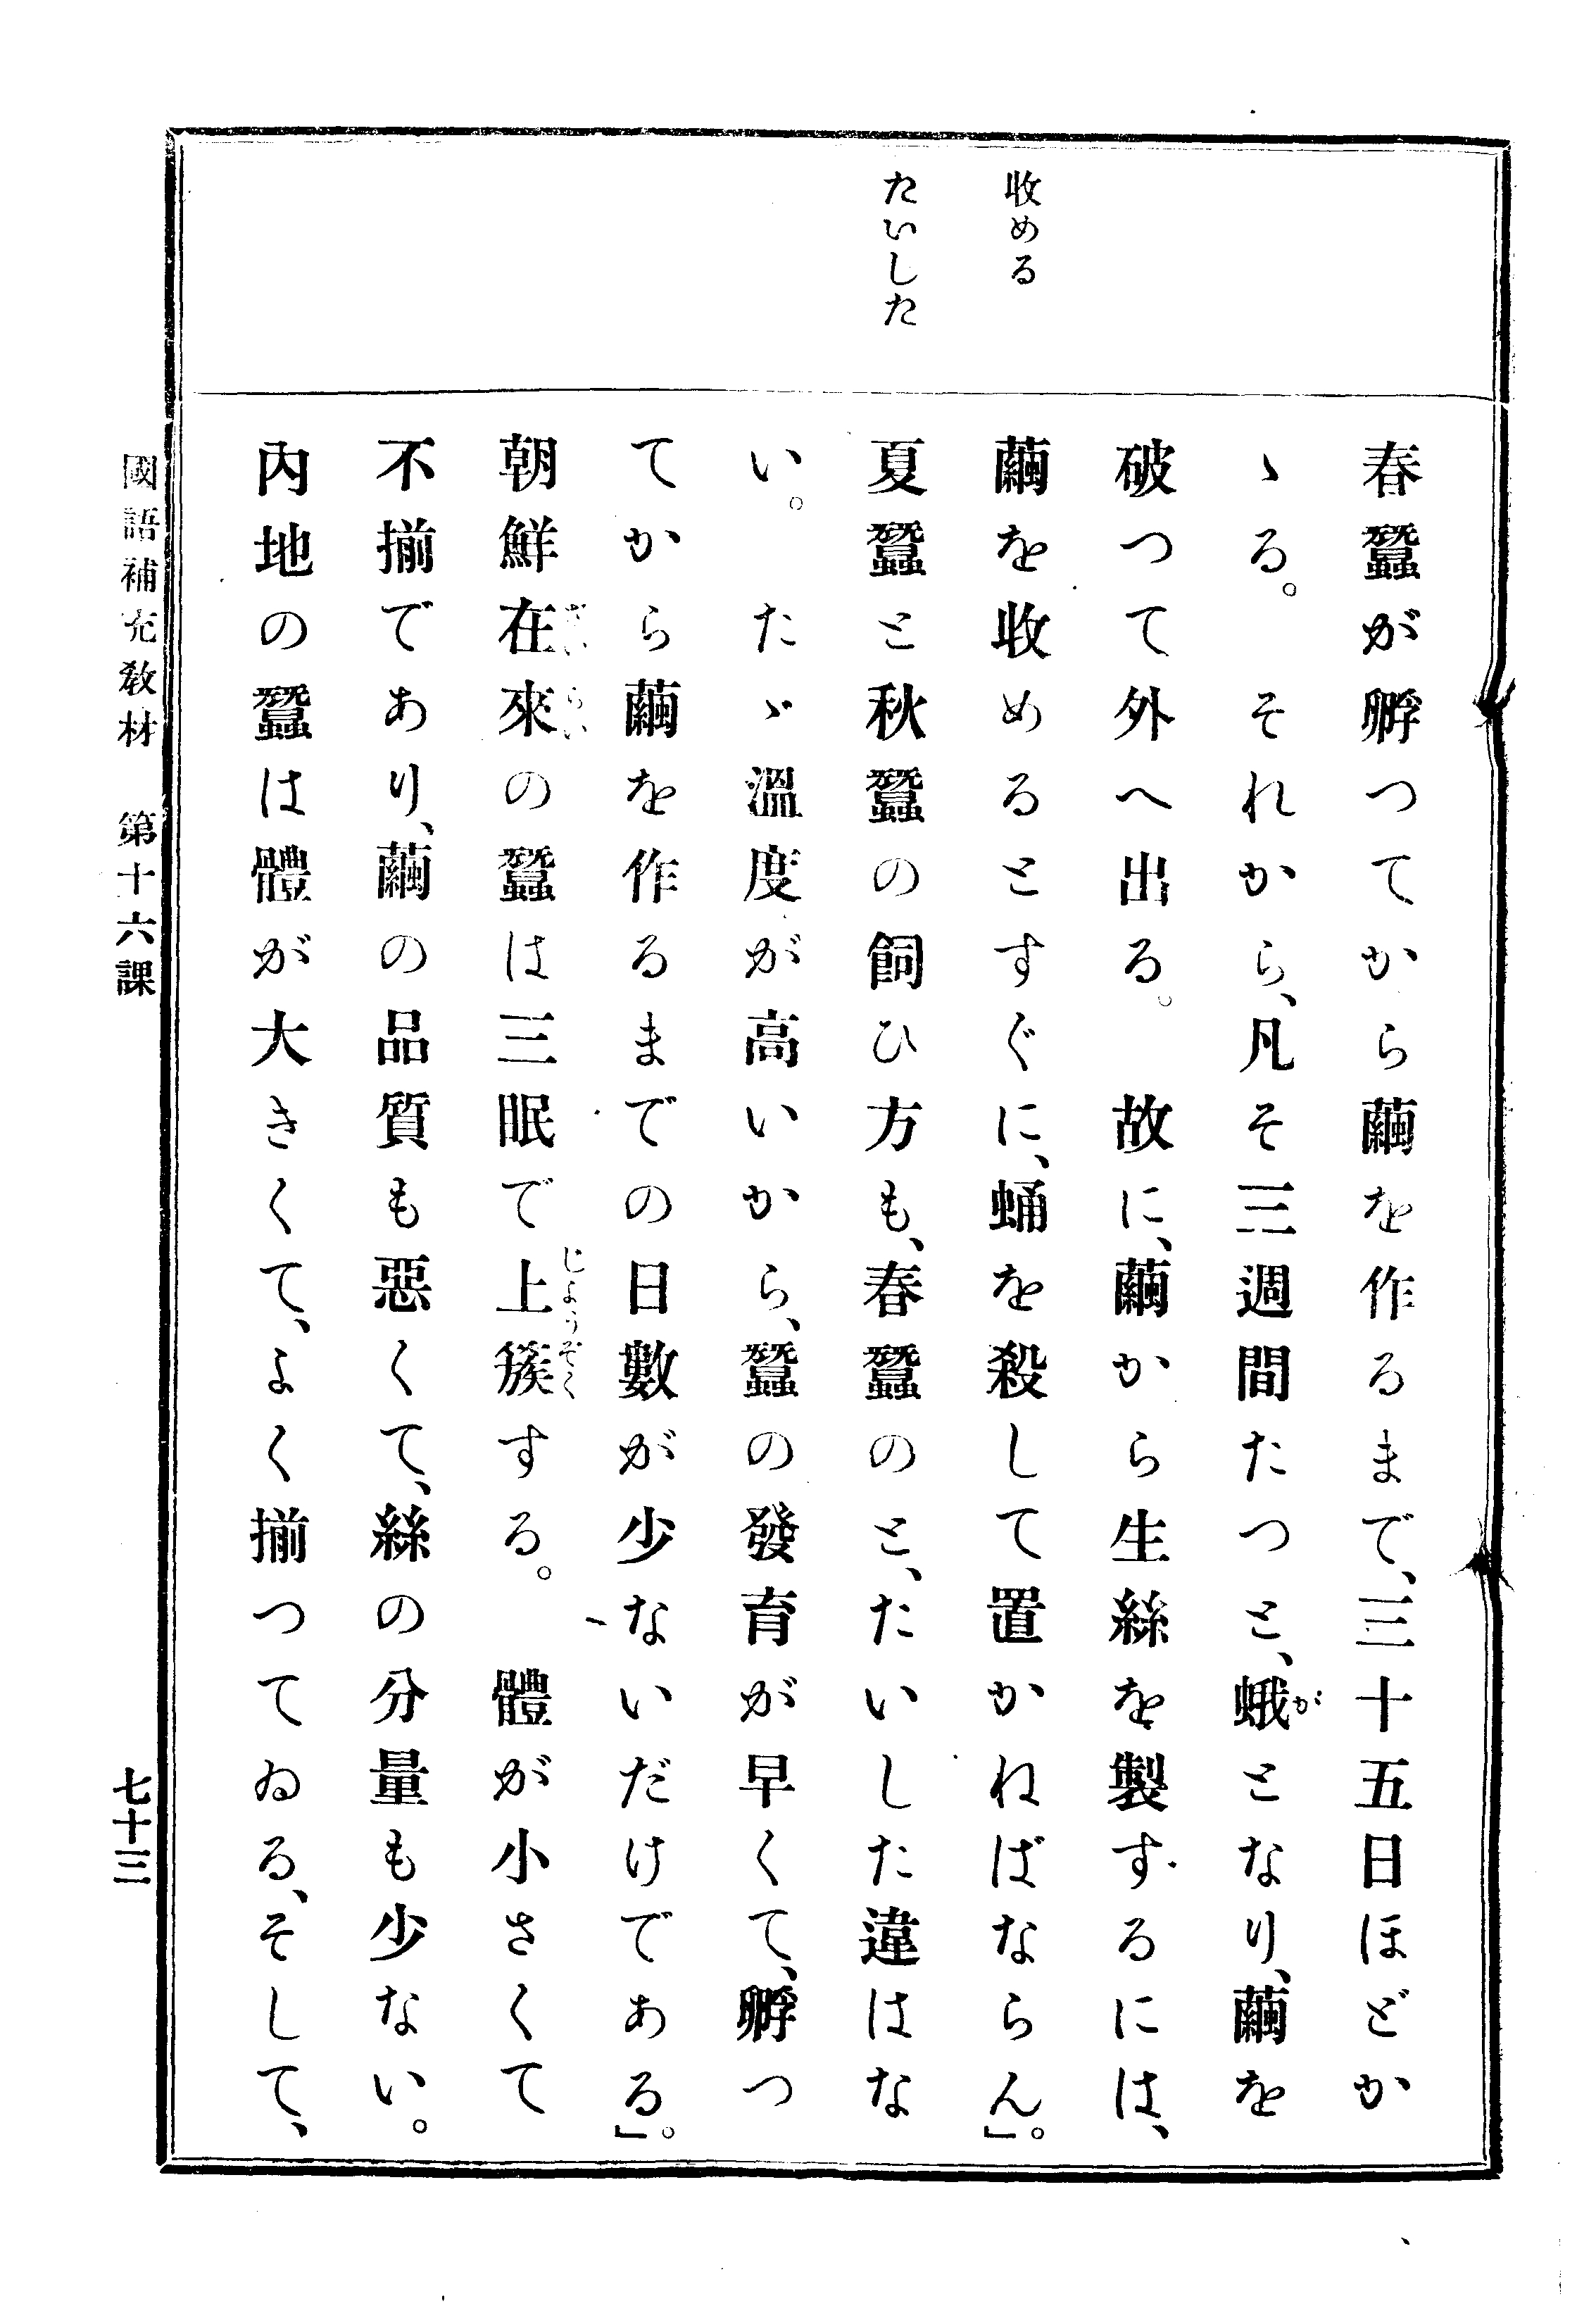 收める
たいした
春蠶が孵つてから繭を作るまで、三十五日ほどか
ゝる。それから、凡そ三週間たつと、蛾となり、繭を
が
破つて外へ出る。故に、繭から生絲を製するには、
繭を收めるとすぐに、蛹を殺して置かねばならん。」
夏蠶と秋蠶の飼ひ方も、春蠶のと、たいした違はな
い。たゞ溫度が高いから、蠶の發育が早くて、孵つ
てから繭を作るまでの日數が少ないだけである。」
朝鮮在來の蠶は三眠で上簇する。體が小さくて
ざいらい
じようぞく
不揃であり、繭の品質も惡くて、絲の分量も少ない。
內地の蠶は體が大きくて、よく揃つてゐる、そして、
國語補充敎材 第十六課
七十三